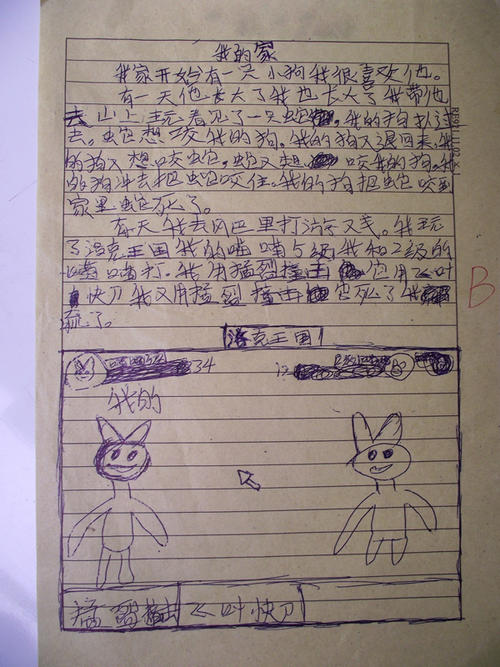 我的家
我家开始有一天小狗我很喜欢他。
有一天他长大了我也长大了我带他
去山上玩看见了一只蛇。我的狗扑过
去。蛇想咬我的狗。我的狗又退回来,我
的狗又想咬蛇。蛇又想咬我的狗。我
的狗冲去把蛇咬住。我的狗把蛇咬到
家里蛇死了。
有天我去网巴里打游戏。我玩
了洛克王国我的喵喵5级我和2级的
喵喵打。我用猛烈撞击他用飞叶
快刀我又用猛烈撞击它死了我
流了。
B
洛克王国
34
我的
猛烈撞击 飞叶快刀